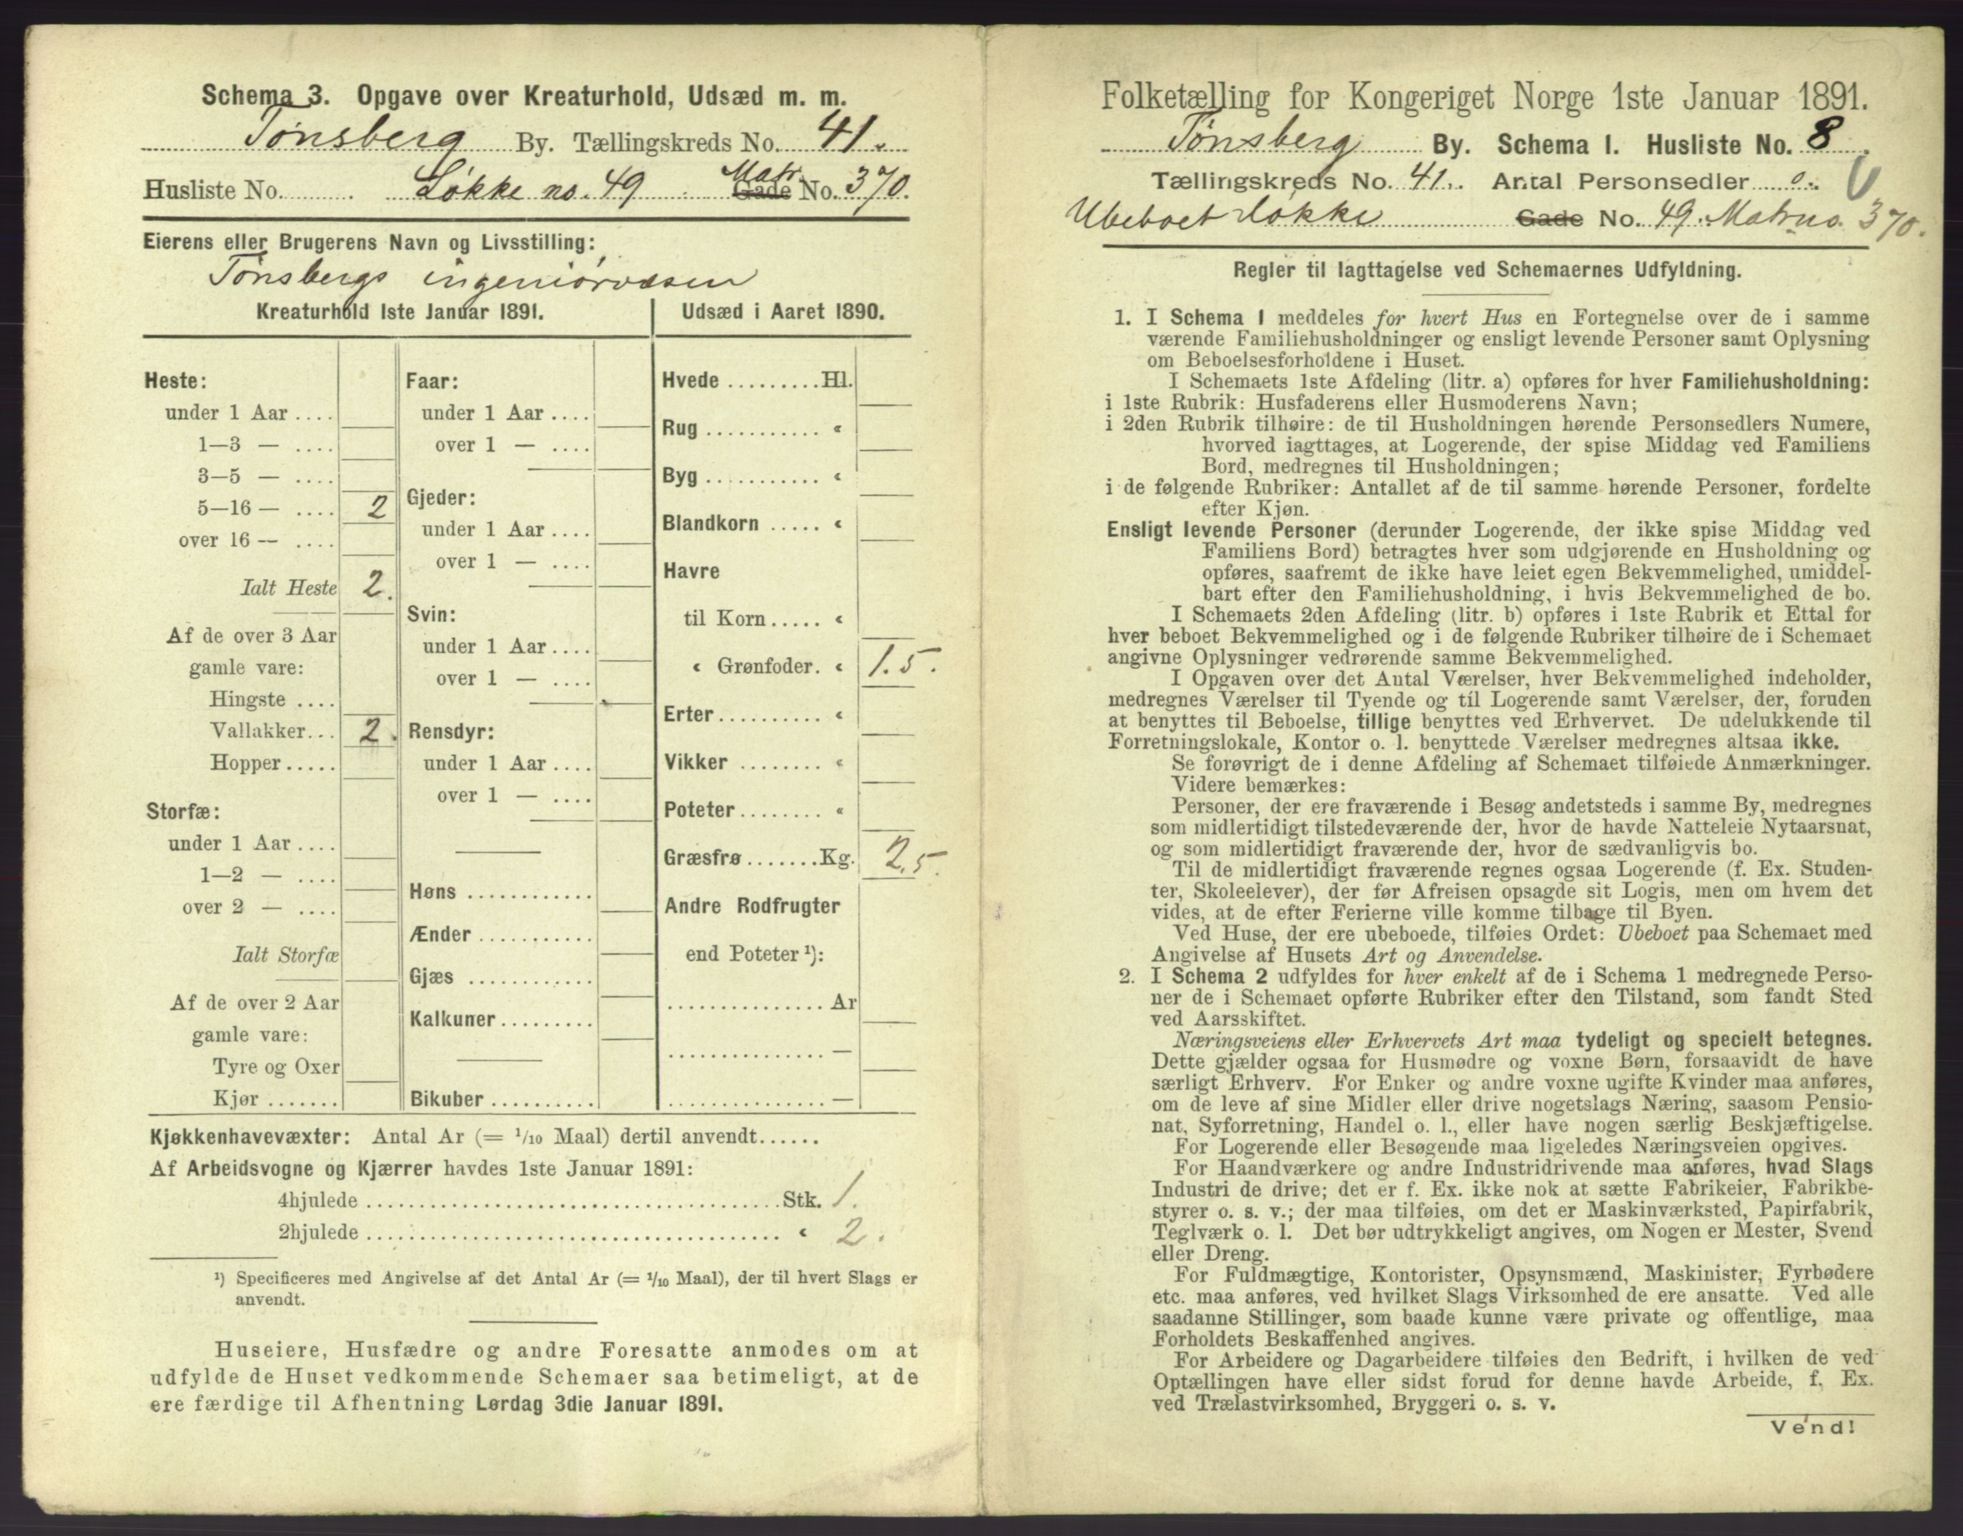 Schema 3. Opgave over Kreaturhold, Udsæd m. m.
Tønsberg By. Tællingskreds No. 41.
Husliste No. Løkke no. 49 Matr. Gade No. 370.
Eierens eller Brugerens Navn og Livsstilling:
Tønsbergs ingeniørvæsen
Kreaturhold 1ste Januar 1891.
Heste:
under 1 Aar ....
1—3 — ....
3—5 — ....
5—16 — .... 2
over 16 — ....
Ialt Heste 2.
Af de over 3 Aar
gamle vare:
Hingste ....
Vallakker... 2.
Hopper.....
Storfæ:
under 1 Aar ....
1—2 — ....
over 2 — ....
Ialt Storfæ
Af de over 2 Aar
gamle vare:
Tyre og Oxer
Kjør .......
Faar:
under 1 Aar ....
over 1 — ....
Gjeder:
under 1 Aar ....
over 1 — ....
Svin:
under 1 Aar ....
over 1 — ....
Rensdyr:
under 1 Aar ....
over 1 — ....
Høns ............
Ænder ...........
Gjæs ............
Kalkuner.........
Bikuber ..........
Udsæd i Aaret 1890.
Hvede .........Hl.
Rug ........... «
Byg ........... «
Blandkorn ..... «
Havre
til Korn..... «
« Grønfoder. « 1.5.
Erter.......... «
Vikker ........ «
Poteter........ «
Græsfrø.......Kg. 2.5.
Andre Rodfrugter
end Poteter ¹):
............... Ar
............... —
............... —
Kjøkkenhavevæxter: Antal Ar (= 1/10 Maal) dertil anvendt......
Af Arbeidsvogne og Kjærrer havdes 1ste Januar 1891:
4hjulede ........................................Stk. 1.
2hjulede ........................................ « 2.
¹) Specificeres med Angivelse af det Antal Ar (= 1/10 Maal), der til hvert Slags er
anvendt.
Huseiere, Husfædre og andre Foresatte anmodes om at
udfylde de Huset vedkommende Schemaer saa betimeligt, at de
ere færdige til Afhentning Lørdag 3die Januar 1891.
Folketælling for Kongeriget Norge 1ste Januar 1891.
Tønsberg By. Schema I. Husliste No. 8.
Tællingskreds No. 41. Antal Personsedler 0.
Ubeboet Løkke Gade No. 49. Matr.no. 370.
Regler til Iagttagelse ved Schemaernes Udfyldning.
1. I Schema 1 meddeles for hvert Hus en Fortegnelse over de i samme
værende Familiehusholdninger og ensligt levende Personer samt Oplysning
om Beboelsesforholdene i Huset.
I Schemaets 1ste Afdeling (litr. a) opføres for hver Familiehusholdning:
i 1ste Rubrik: Husfaderens eller Husmoderens Navn;
i 2den Rubrik tilhøire: de til Husholdningen hørende Personsedlers Numere,
hvorved iagttages, at Logerende, der spise Middag ved Familiens
Bord, medregnes til Husholdningen;
i de følgende Rubriker: Antallet af de til samme hørende Personer, fordelte
efter Kjøn.
Ensligt levende Personer (derunder Logerende, der ikke spise Middag ved
Familiens Bord) betragtes hver som udgjørende en Husholdning og
opføres, saafremt de ikke have leiet egen Bekvemmelighed, umiddel-
bart efter den Familiehusholdning, i hvis Bekvemmelighed de bo.
I Schemaets 2den Afdeling (litr. b) opføres i 1ste Rubrik et Ettal for
hver beboet Bekvemmelighed og i de følgende Rubriker tilhøire de i Schemaet
angivne Oplysninger vedrørende samme Bekvemmelighed.
I Opgaven over det Antal Værelser, hver Bekvemmelighed indeholder,
medregnes Værelser til Tyende og til Logerende samt Værelser, der, foruden
at benyttes til Beboelse, tillige benyttes ved Erhvervet. De udelukkende til
Forretningslokale, Kontor o. l. benyttede Værelser medregnes altsaa ikke.
Se forøvrigt de i denne Afdeling af Schemaet tilføiede Anmærkninger.
Videre bemærkes:
Personer, der ere fraværende i Besøg andetsteds i samme By, medregnes
som midlertidigt tilstedeværende der, hvor de havde Natteleie Nytaarsnat,
og som midlertidigt fraværende der, hvor de sædvanligvis bo.
Til de midlertidigt fraværende regnes ogsaa Logerende (f. Ex. Studen-
ter, Skoleelever), der før Afreisen opsagde sit Logis, men om hvem det
vides, at de efter Ferierne ville komme tilbage til Byen.
Ved Huse, der ere ubeboede, tilføies Ordet: Ubeboet paa Schemaet med
Angivelse af Husets Art og Anvendelse.
2. I Schema 2 udfyldes for hver enkelt af de i Schema 1 medregnede Perso-
ner de i Schemaet opførte Rubriker efter den Tilstand, som fandt Sted
ved Aarsskiftet.
Næringsveiens eller Erhvervets Art maa tydeligt og specielt betegnes.
Dette gjælder ogsaa for Husmødre og voxne Børn, forsaavidt de have
særligt Erhverv. For Enker og andre voxne ugifte Kvinder maa anføres,
om de leve af sine Midler eller drive nogetslags Næring, saasom Pensio-
nat, Syforretning, Handel o. l., eller have nogen særlig Beskjæftigelse.
For Logerende eller Besøgende maa ligeledes Næringsveien opgives.
For Haandværkere og andre Industridrivende maa anføres, hvad Slags
Industri de drive; det er f. Ex. ikke nok at sætte Fabrikeier, Fabrikbe-
styrer o. s. v.; der maa tilføies, om det er Maskinværksted, Papirfabrik,
Teglværk o. l. Det bør udtrykkeligt angives, om Nogen er Mester, Svend
eller Dreng.
For Fuldmægtige, Kontorister, Opsynsmænd, Maskinister, Fyrbødere
etc. maa anføres, ved hvilket Slags Virksomhed de ere ansatte. Ved alle
saadanne Stillinger, som baade kunne være private og offentlige, maa
Forholdets Beskaffenhed angives.
For Arbeidere og Dagarbeidere tilføies den Bedrift, i hvilken de ved
Optællingen have eller sidst forud for denne havde Arbeide, f. Ex.
ved Trælastvirksomhed, Bryggeri o. s. v.
Vend!